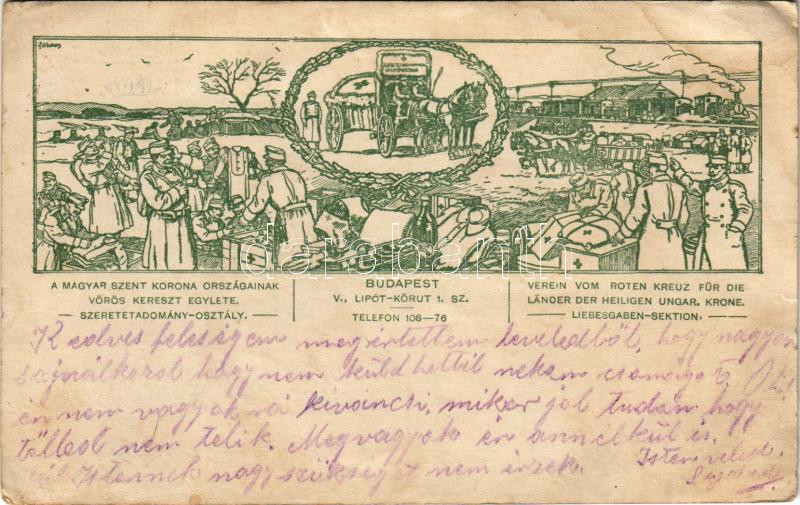 A MAGYAR SZENT KORONA ORSZÁGAINAK
VÖRÖS KERESZT EGYLETE.
SZERETETADOMÁNY-OSZTÁLY.
BUDAPEST
V., LIPÓT-KÖRUT 1. SZ.
TELEFON 108—76
VEREIN VOM ROTEN KREUZ FÜR DIE
LÄNDER DER HEILIGEN UNGAR. KRONE.
LIEBESGABEN-SEKTION.
Kedves feleségem megértettem leveledből, hogy nagyon
sajnálkozol hogy nem küldhettél nekem csomagot
én nem vagyok rá kiváncsi, mikor jól tudom hogy
tölled nem telik. Megvagyok én annélkül is,
Istennek nagy szükséget nem érzek.
Isten veled
darabanth